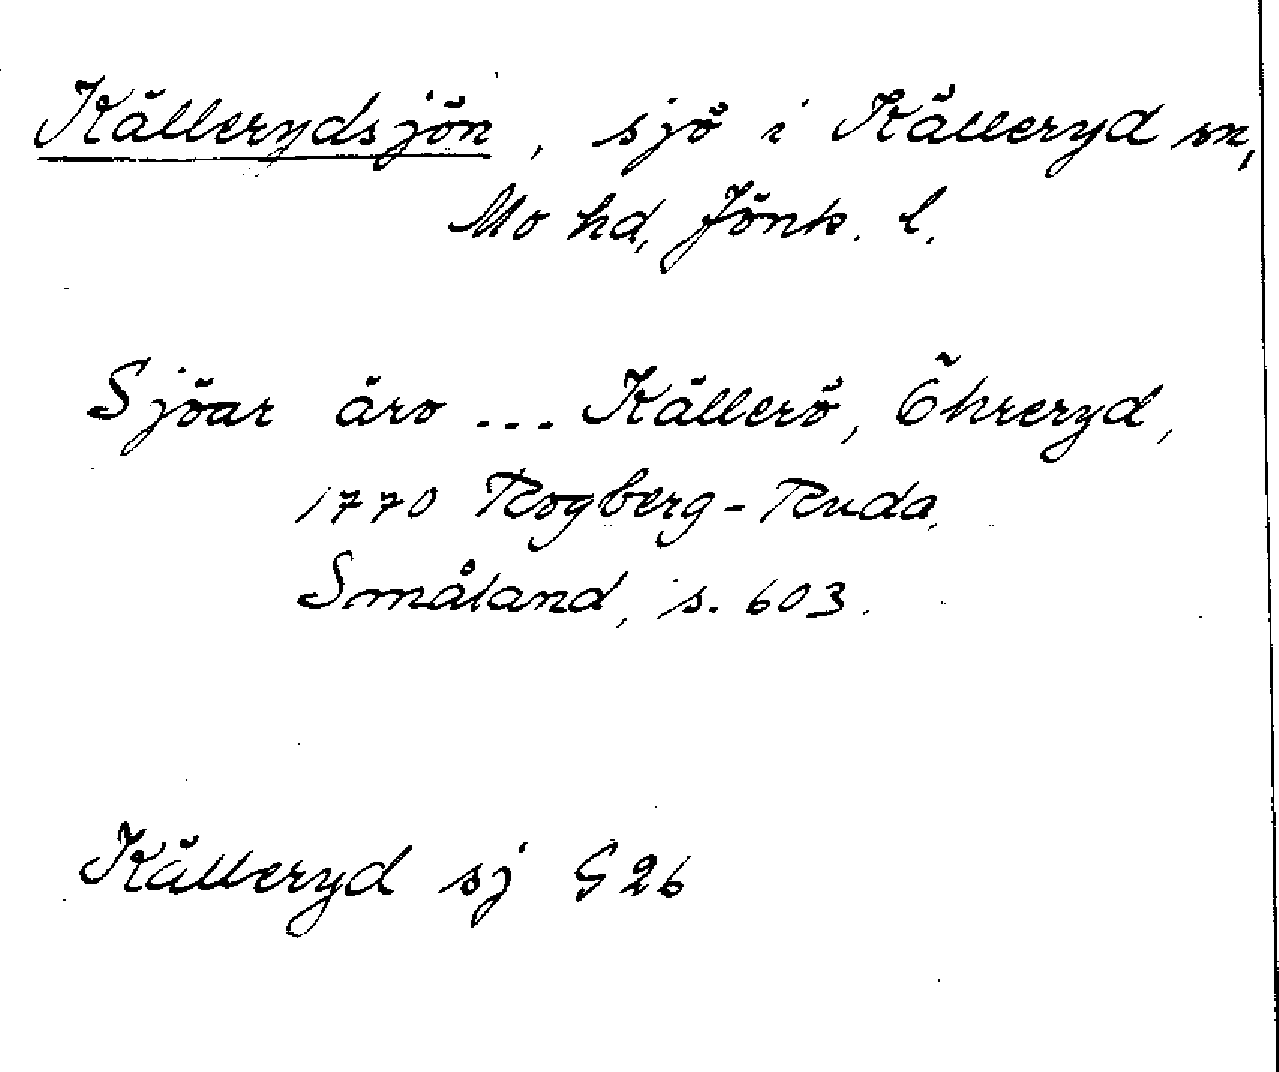 Källerydsjön, sjö i Källeryd sn,
Mo hd, Jönk. l.
Sjöar äro ... Källerö, Öhreryd,
1770 Rogberg-Ruda,
Småland, s. 603.
Källeryd sj G 26